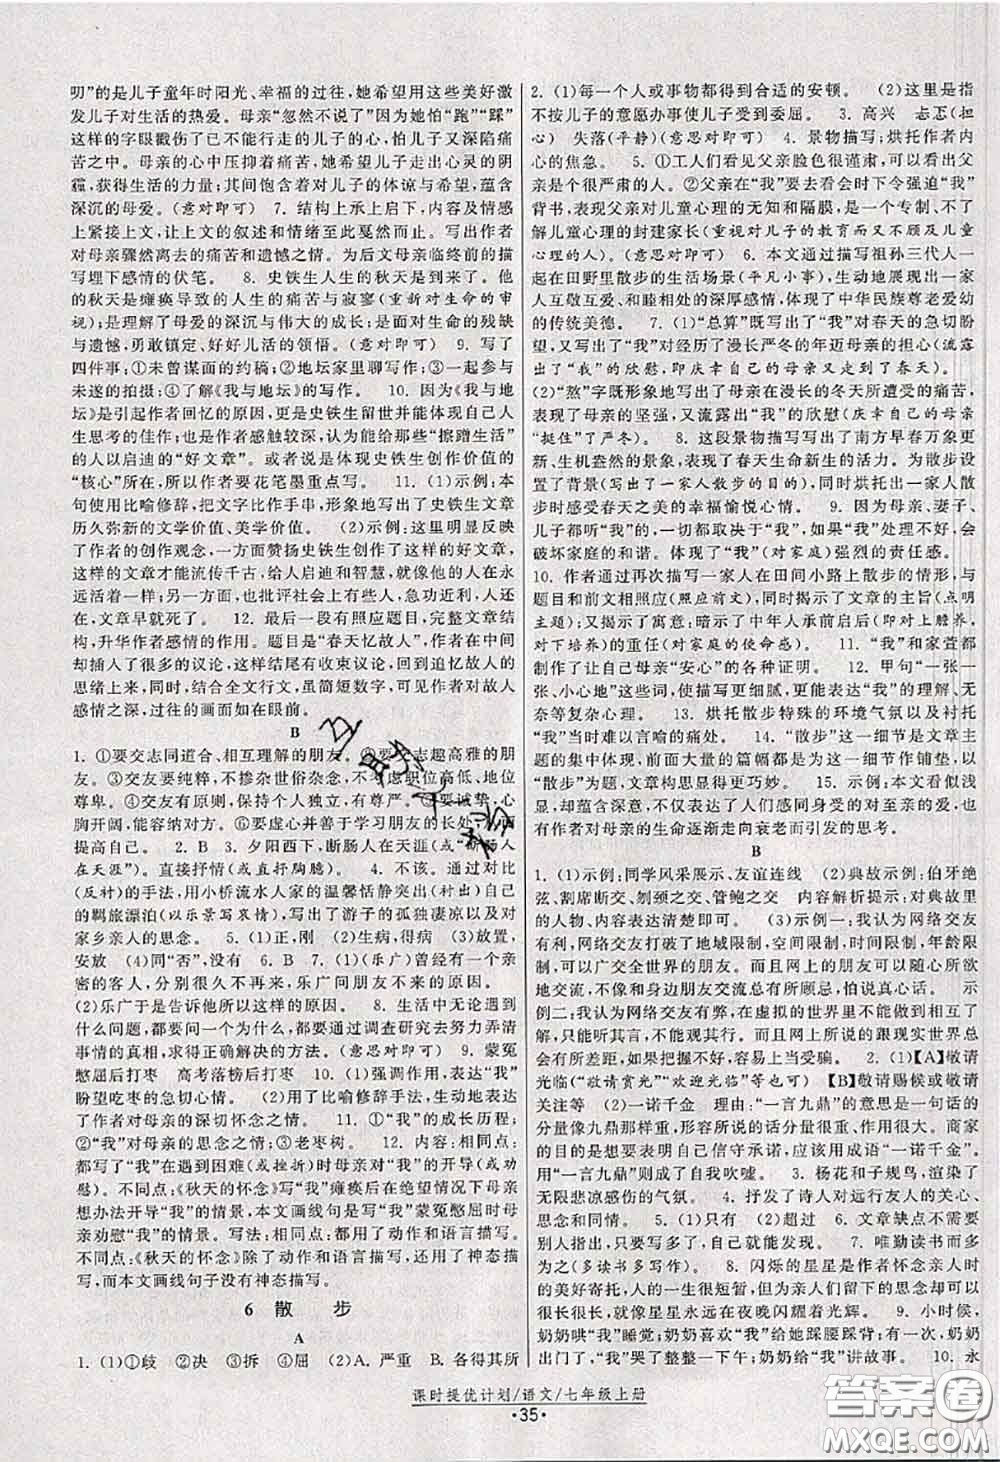 叨”的是儿子童年时阳光、幸福的过往,她希望用这些美好激
发儿子对生活的热爱。母亲“忽然不说了”是因为她怕“跑”“踩”
这样的字眼戳伤了已不能行走的儿子的心,怕儿子又深陷痛
苦之中。母亲的心中压抑着痛苦,她希望儿子走出心灵的阴
霾,获得生活的力量;其中包含着对儿子的体谅与希望,蕴含
深沉的母爱。(意对即可) 7. 结构上承上启下,内容及情感
上紧接上文,让上文的叙述和情绪至此戛然而止。写出作者
对母亲骤然离去的痛苦和遗憾之情。为后文母亲临终前的描
写埋下感情的伏笔。 8. 史铁生人生的秋天是到来了。他
的秋天是瘫痪导致的人生的痛苦与寂寥(积极对生命的审
视);是理解了母爱的深沉与伟大的成长;是面对生命的残缺
与遗憾,勇敢镇定、好好儿活的领悟。(意对即可) 9. 写了
四件事:①未曾谋面的约稿;②地坛家里聊写作;③一起参与
未遂的拍摄;④了解《我与地坛》的写作。 10. 因为《我与地
坛》是引起作者回忆的原因,更是史铁生留世并能体现自己人
生思考的佳作;也是作者感触较深,认为能给那些“擦蹭生活”
的人以启迪的“好文章”。或者说是体现史铁生创作价值的
“核心”所在,所以作者要花笔墨重点写。 11. (1)示例:本
句使用比喻修辞,把文字比作手串,形象地写出史铁生文章
历久弥新的文学价值、美学价值。 (2)示例:这里明显反映
了作者的创作观念,一方面赞扬史铁生创作了这样的好文章,
这样的文章才能流传千古,给人启迪和智慧,就像他的人一样
永远活着;另一方面,也批评社会上有些人,急功近利,人还
在,文章早就死了。 12. 最后一段有照应题目,完整文章结
构,升华作者感情的作用。题目是“春天忆故人”,作者在中间
却插入了很多的议论,这样结尾有收束议论,回到追忆故人的
思绪上来,同时,结合全文行文,虽简短数字,可见作者对故人
感情之深,过往的画面如在眼前。
B
1. ①要交志同道合、相互理解的朋友。②要交志趣高雅的朋
友。③交友要纯粹,不掺杂世俗杂念,不考虑职位高低、地位
尊卑。④交友有原则,保持个人独立,有尊严。⑤要诚挚,心
胸开阔,能容纳对方。⑥要虚心并善于学习朋友的长处,巩固
提高自己。 2. B 3. 夕阳西下,断肠人在天涯(或断肠人
在天涯)。 直接抒情(或直抒胸臆) 4. 不该。通过对比
(反衬)的手法,用小桥流水人家的温馨恬静突出(衬出)自己
的羁旅漂泊(以乐景写哀情),写出了游子的孤独凄凉以及对
家乡亲人的思念。 5. (1)正,刚 (2)生病,得病 (3)放置,
安放 (4)同“否”,没有 6. B 7. (1)(乐广)曾经有一个亲
密的客人,分别很久不再来,乐广问朋友不来的原因。
(2)乐广于是告诉他所以这样的原因。 8. 生活中无论遇到
什么问题,都要问个为什么,都要通过调查研究去努力弄清
事情的真相,求得正确解决的方法。(意思对即可) 9. 蒙冤
憋屈后打枣 高考落榜后打枣 10. (1)强调作用,表现我急
盼吃枣的急切心情。 (2)用了比喻修辞手法,生动地表达了
作者对母亲的深切怀念之情。 11. ①“我”的成长历程;
②“我”对母亲的思念之情;③老枣树。 12. 内容:相同点:
都描写了“我”在遇到困难(或挫折)时母亲对“我”的关心。
不同点:《秋天的怀念》写“我”瘫痪后在绝望情况下母亲
想办法开导“我”的情景,本文画线句是写“我”蒙冤憋屈时母
亲劝慰“我”的情景。写法:相同点:都用了动作和语言描写。
不同点:《秋天的怀念》除了动作和语言描写外,还用了神态描
写,而本文画线句子没有神态描写。
6 散 步
A
1. (1)①歧 ②决 ③拆 ④屈 (2)A. 严重 B. 各得其所
2. (1)每一个人或事物都得到合适的安顿。 (2)这里是指
不按儿子的意愿办事使儿子受到委屈。 3. 高兴 忐忑(担
心) 失落(平静)(意思对即可) 4. 景物描写;烘托作者内
心的焦急。 5. ①工人们看见父亲脸色很谨肃,可见父
亲是个很严肃的人。②父亲在“我”要去看会时下令强迫“我”
背书,表现父亲对儿童心理的无知和隔膜,是一个专制、不了
解儿童心理的封建家长(重视对儿女的教育却不顾及儿童
心理的家长)(意对即可) 6. 本文通过描写祖孙三代人一
起在田野里散步的生活场景(平凡小事),生动地展现了一家
人互敬互爱、和睦相处的深厚感情,体现了中华民族尊老爱幼
的传统美德。 7. (1)“总算”既写出了“我”对春天的急切盼
望,又写出了“我”对经历了漫长严冬的年迈母亲的担心(流露
出了“我”的欣慰,即庆幸自己的母亲又走到了春天)。
(2)“熬”字既形象地写出了母亲在漫长的冬天所遭受的痛苦,
表现了母亲的坚强,又流露出了“我”的欣慰(庆幸自己的母亲
“挺住”了严冬)。 8. 这段景物描写写出了南方早春万象更
新、生机盎然的景象,表现了春天生命新生的活力。为散步设
置了背景(写出了一家人散步的目的),同时烘托出一家人散
步时感受春天之美的幸福愉悦心情。 9. 因为母亲、妻子、
儿子都听“我”的,一切都取决于“我”,如果“我”处理不好,会
破坏家庭的和谐。体现了“我”(对家庭)强烈的责任感。
10. 作者通过再次描写一家人在田间小路上散步的情形,与
题目和前文相照应(照应前文),同时揭示了文章的主旨(点明
主题);又揭示了寓意,暗示了中年人承前启后(对上赡养,
对下培养)的重任(对家庭的使命感)。 11. “我”和家萱都
制作了让自己母亲“安心”的各种证明。 12. 甲句“一张一
张、小心地”这些词,使描写更细腻,更能表达“我”的理解、无
奈等复杂心理。 13. 烘托散步特殊的环境气氛以及衬托
“我”当时难以言喻的痛处。 14. “散步”这一细节是文章主
题的集中体现,前面大量的篇幅都可以为这一细节作铺垫,以
“散步”为题,文章构思显得更巧妙。 15. 示例:本文看似浅
显,却蕴含深意,不仅表达了人们感同身受的对至亲的爱,也
有作者对母亲的生命逐渐走向衰老而引发的思考。
B
1. (1)示例:同学风采展示、友谊连线 (2)典故示例:伯牙绝
弦、割席断交、刎颈之交、管鲍之交 内容解析提示:对典故里
的人物、内容表达清楚即可。 (3)示例一:我认为网络交友
有利,网络交友打破了地域限制,空间限制,时间限制,年龄限
制,可以广交全世界的朋友。而且网上的朋友可以随心所欲
地交流,不像和身边朋友交流有所顾忌,怕说真心话。 示
例二:我认为网络交友有弊,在虚拟的世界里不了解对方,
只能听其言,不能观其行。而且网上所说的跟现实世界也会
有所差距,如果把握不好,容易上当受骗。 2. (1)【A】敬请
光临(“敬请赏光”“欢迎光临”等也可) 【B】敬请赐候或敬请
关注等 (2)一诺千金 理由:“一言九鼎”的意思是一句话的
分量像九鼎那样重,形容所说的话分量很重、作用很大。商家
的本意是想表明自己信守承诺,应该用成语“一诺千金”。
用“一言九鼎”则成了自我吹嘘。 3. 杨花和子规鸟,渲染了
无限悲凉感伤的气氛。 4. 抒发了诗人对远行友人的关心、
思念和同情。 5. (1)只有 (2)超过 6. 文章缺点不需要
别人指出,自己多写作就能发现。 7. 唯勤读书而多为之
(多读书多写作)。 8. 闪烁的星星是作者怀念亲人时
的美好寄托,人的一生很短暂,但亲人们留下的思念却可以
很久很久,就像星星永远在夜晚闪耀着光辉。 9. 小时候,
奶奶哄“我”睡觉;奶奶喜欢“我”给她踩腰踩背;有一次,奶奶
出门了,“我”哭了整整一下午;奶奶给“我”讲故事。 10. 永
课时提优计划/语文/七年级上册
·35·
答案
MXQE.COM